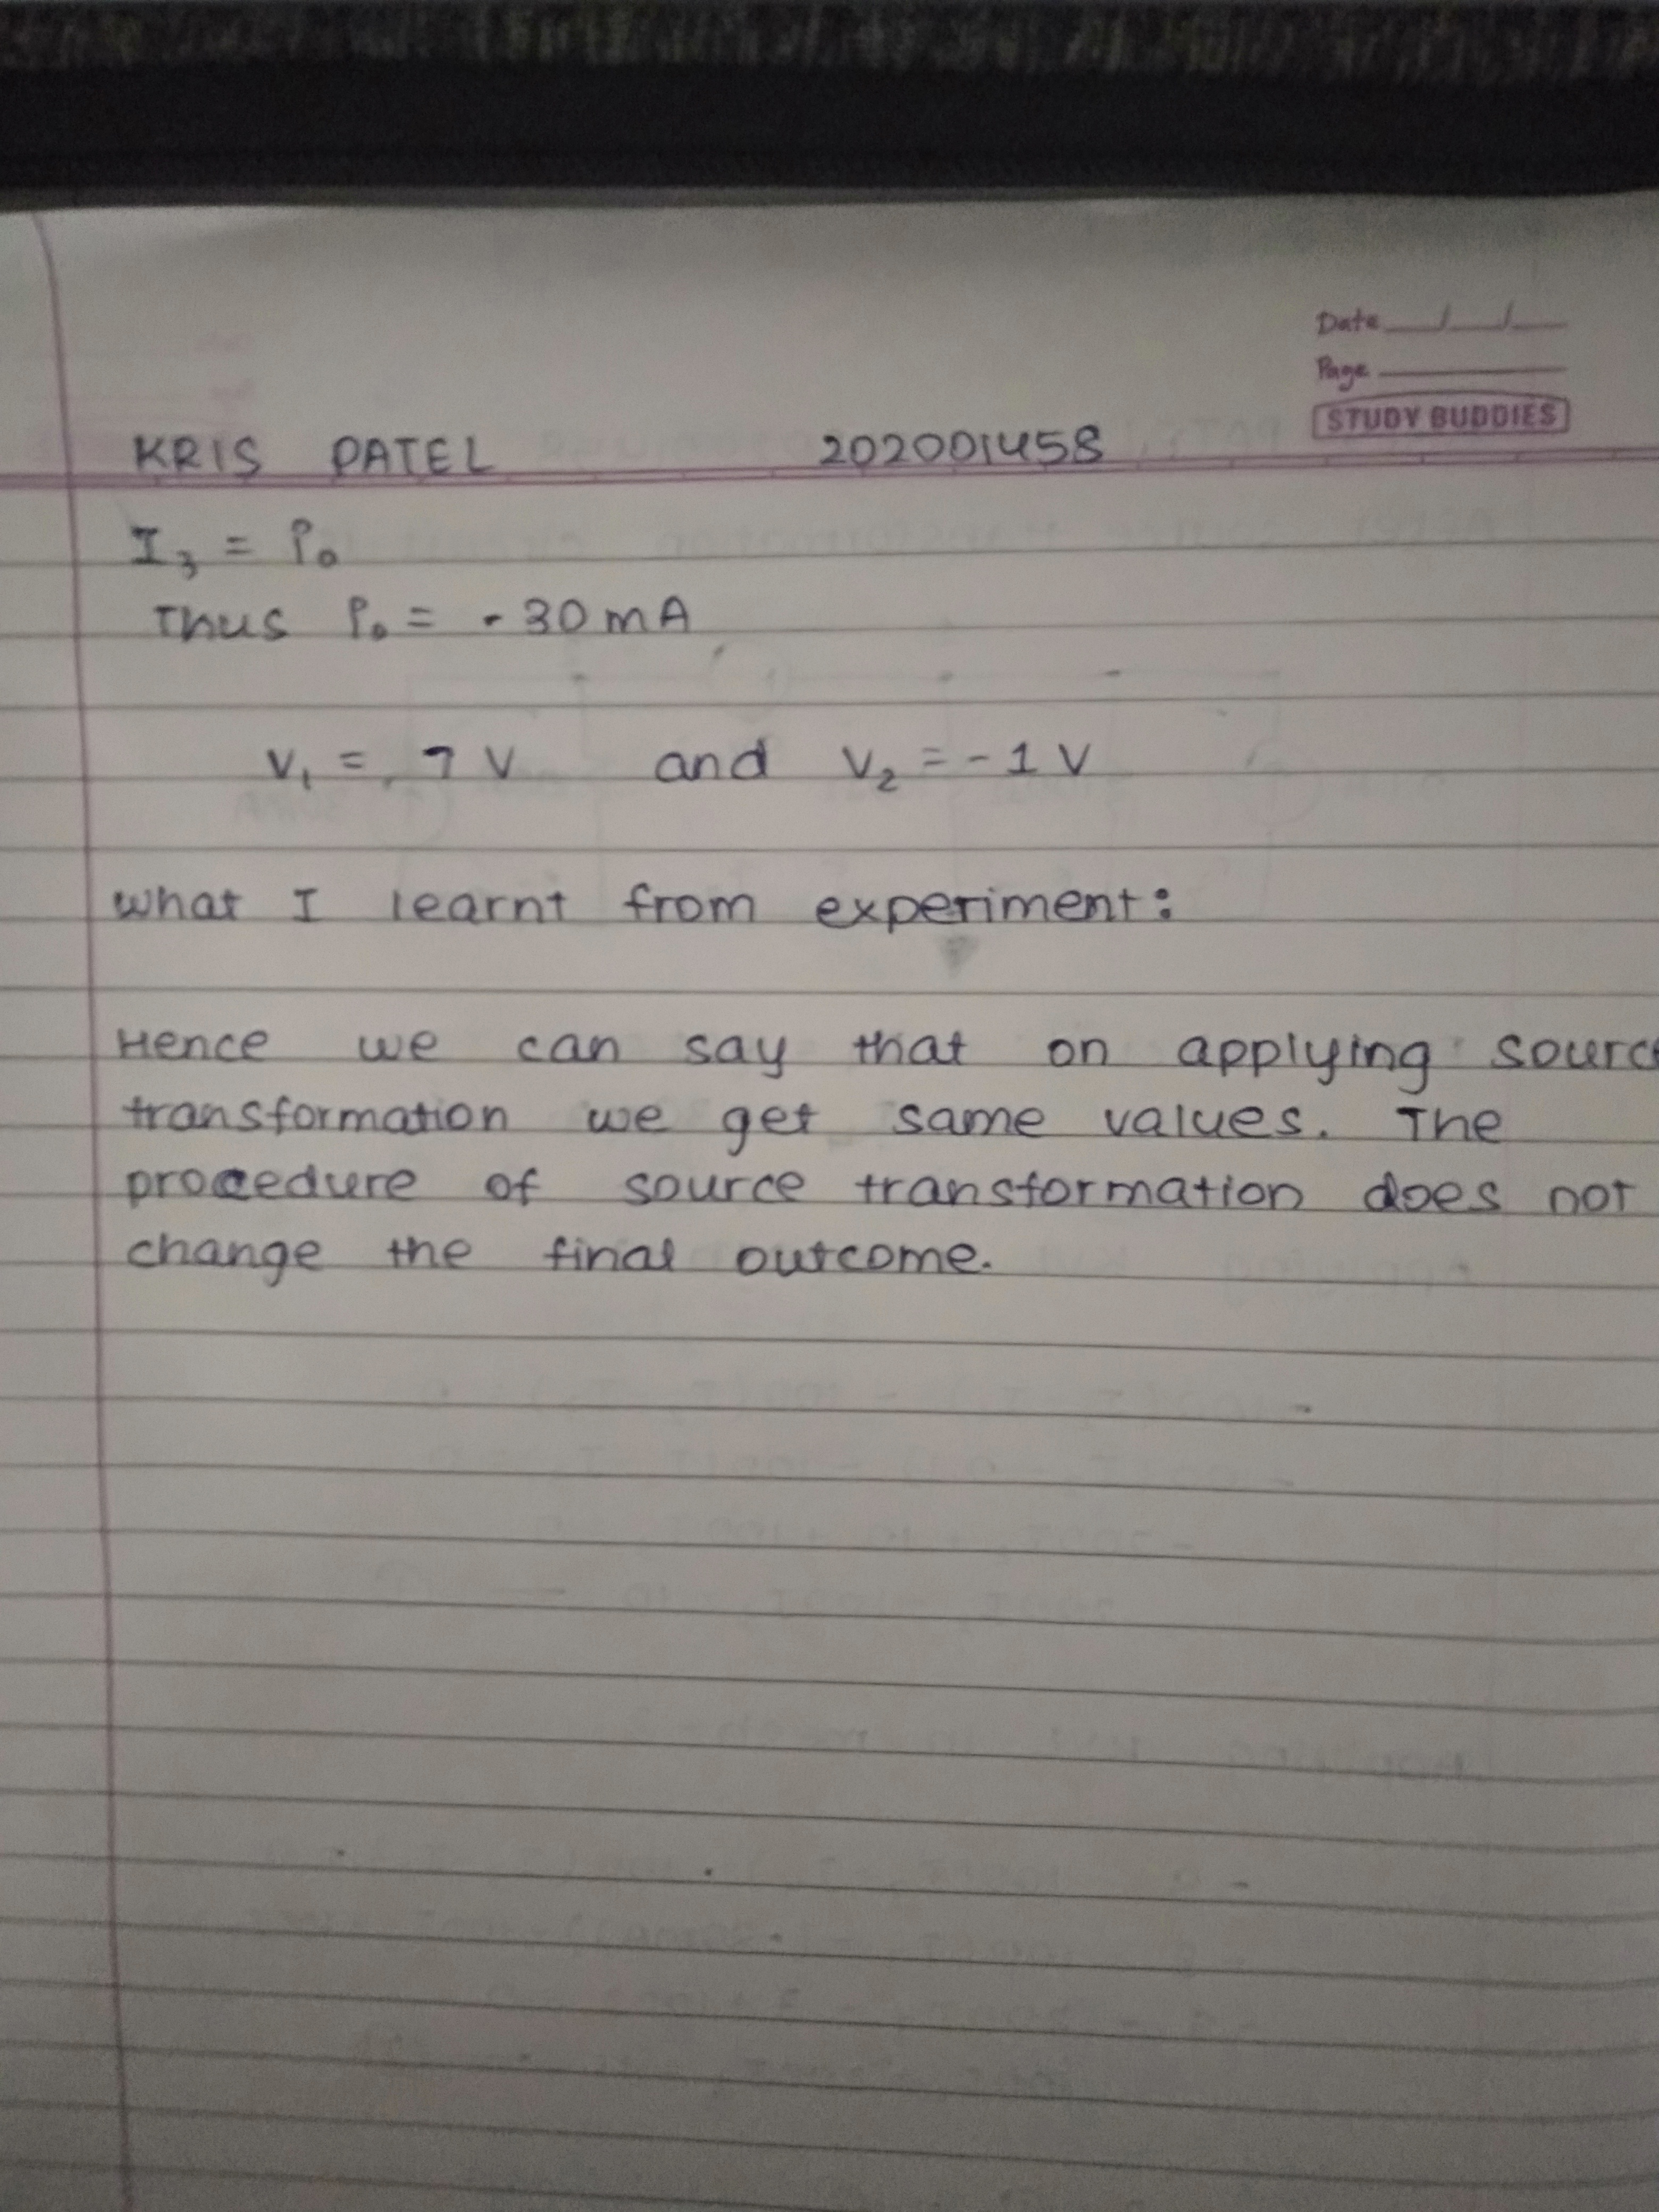 Date
Page
STUDY BUDDIES
KRIS PATEL 202001458
I₃ = i₀
Thus i₀ = -30 mA
V₁ = 7 V and V₂ = -1 V
what I learnt from experiment:
Hence we can say that on applying sourc
transformation we get same values. The
procedure of source transformation does not
change the final outcome.